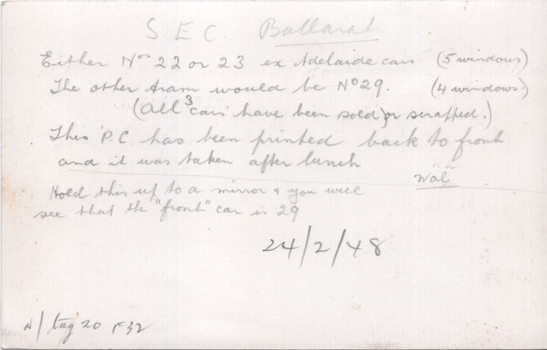 S E C Ballarat
Either Nos 22 or 23 ex Adelaide cars (5 windows)
The other tram would be No 29. (4 windows)
(All 3 cars have been sold or scrapped.)
This P.C has been printed back to front
and it was taken after lunch
Wal
Hold this up to a mirror & you will
see that the "front" car is 29
24/2/48
20 F32